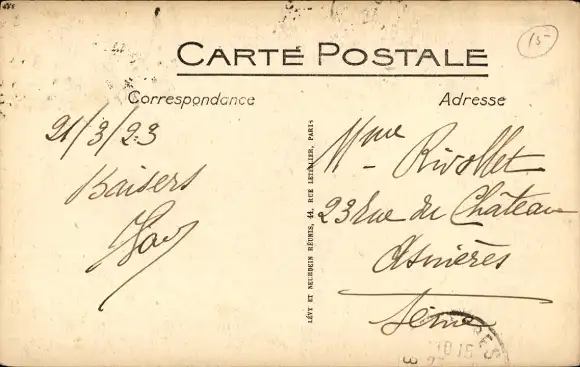 15
CARTE POSTALE
Correspondance
Adresse
21/3/23
Baisers
LÉVY ET NEURDEIN RÉUNIS, 44, RUE LETELLIER, PARIS
Mme Rivollet
23 rue du Château
Asnières
Seine